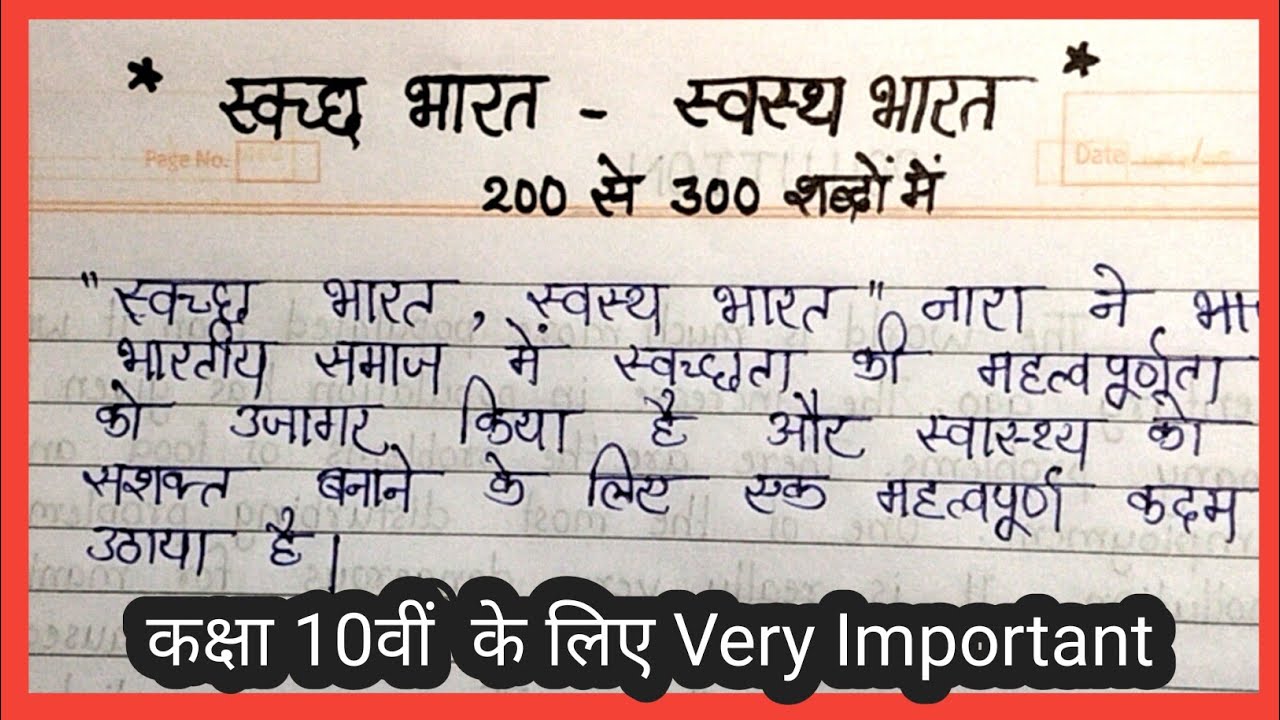 * स्वच्छ भारत - स्वस्थ भारत *
Page No.
Date
200 से 300 शब्दों में
"स्वच्छ भारत, स्वस्थ भारत" नारा ने भा
भारतीय समाज में स्वच्छता की महत्वपूर्णता
को उजागर किया है और स्वास्थ्य को
सशक्त बनाने के लिए एक महत्वपूर्ण कदम
उठाया है।
कक्षा 10वीं के लिए Very Important